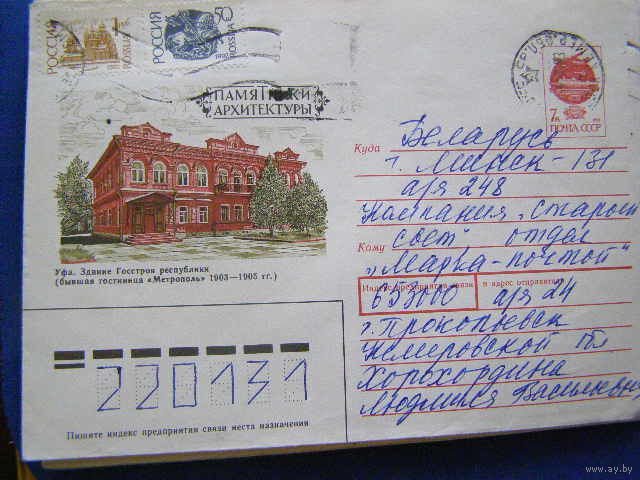 РОССИЯ
РОССИЯ
50
ROSSIJA
1992
ПАМЯТНИКИ
АРХИТЕКТУРЫ
7к
ПОЧТА СССР
Уфа. Здание Госстроя республики
(бывшая гостиница «Метрополь» 1903—1905 гг.)
Куда Беларусь
г. Минск-131
а/я 248
Компания „Старый
Кому свет" отдел
„Марка-почтой"
Индекс предприятия связи и адрес отправителя
653000 а/я 24
г. Прокопьевск
Кемеровской обл
Хорьхордина
Людмила
220131
Пишите индекс предприятия связи места назначения
www.ay.by